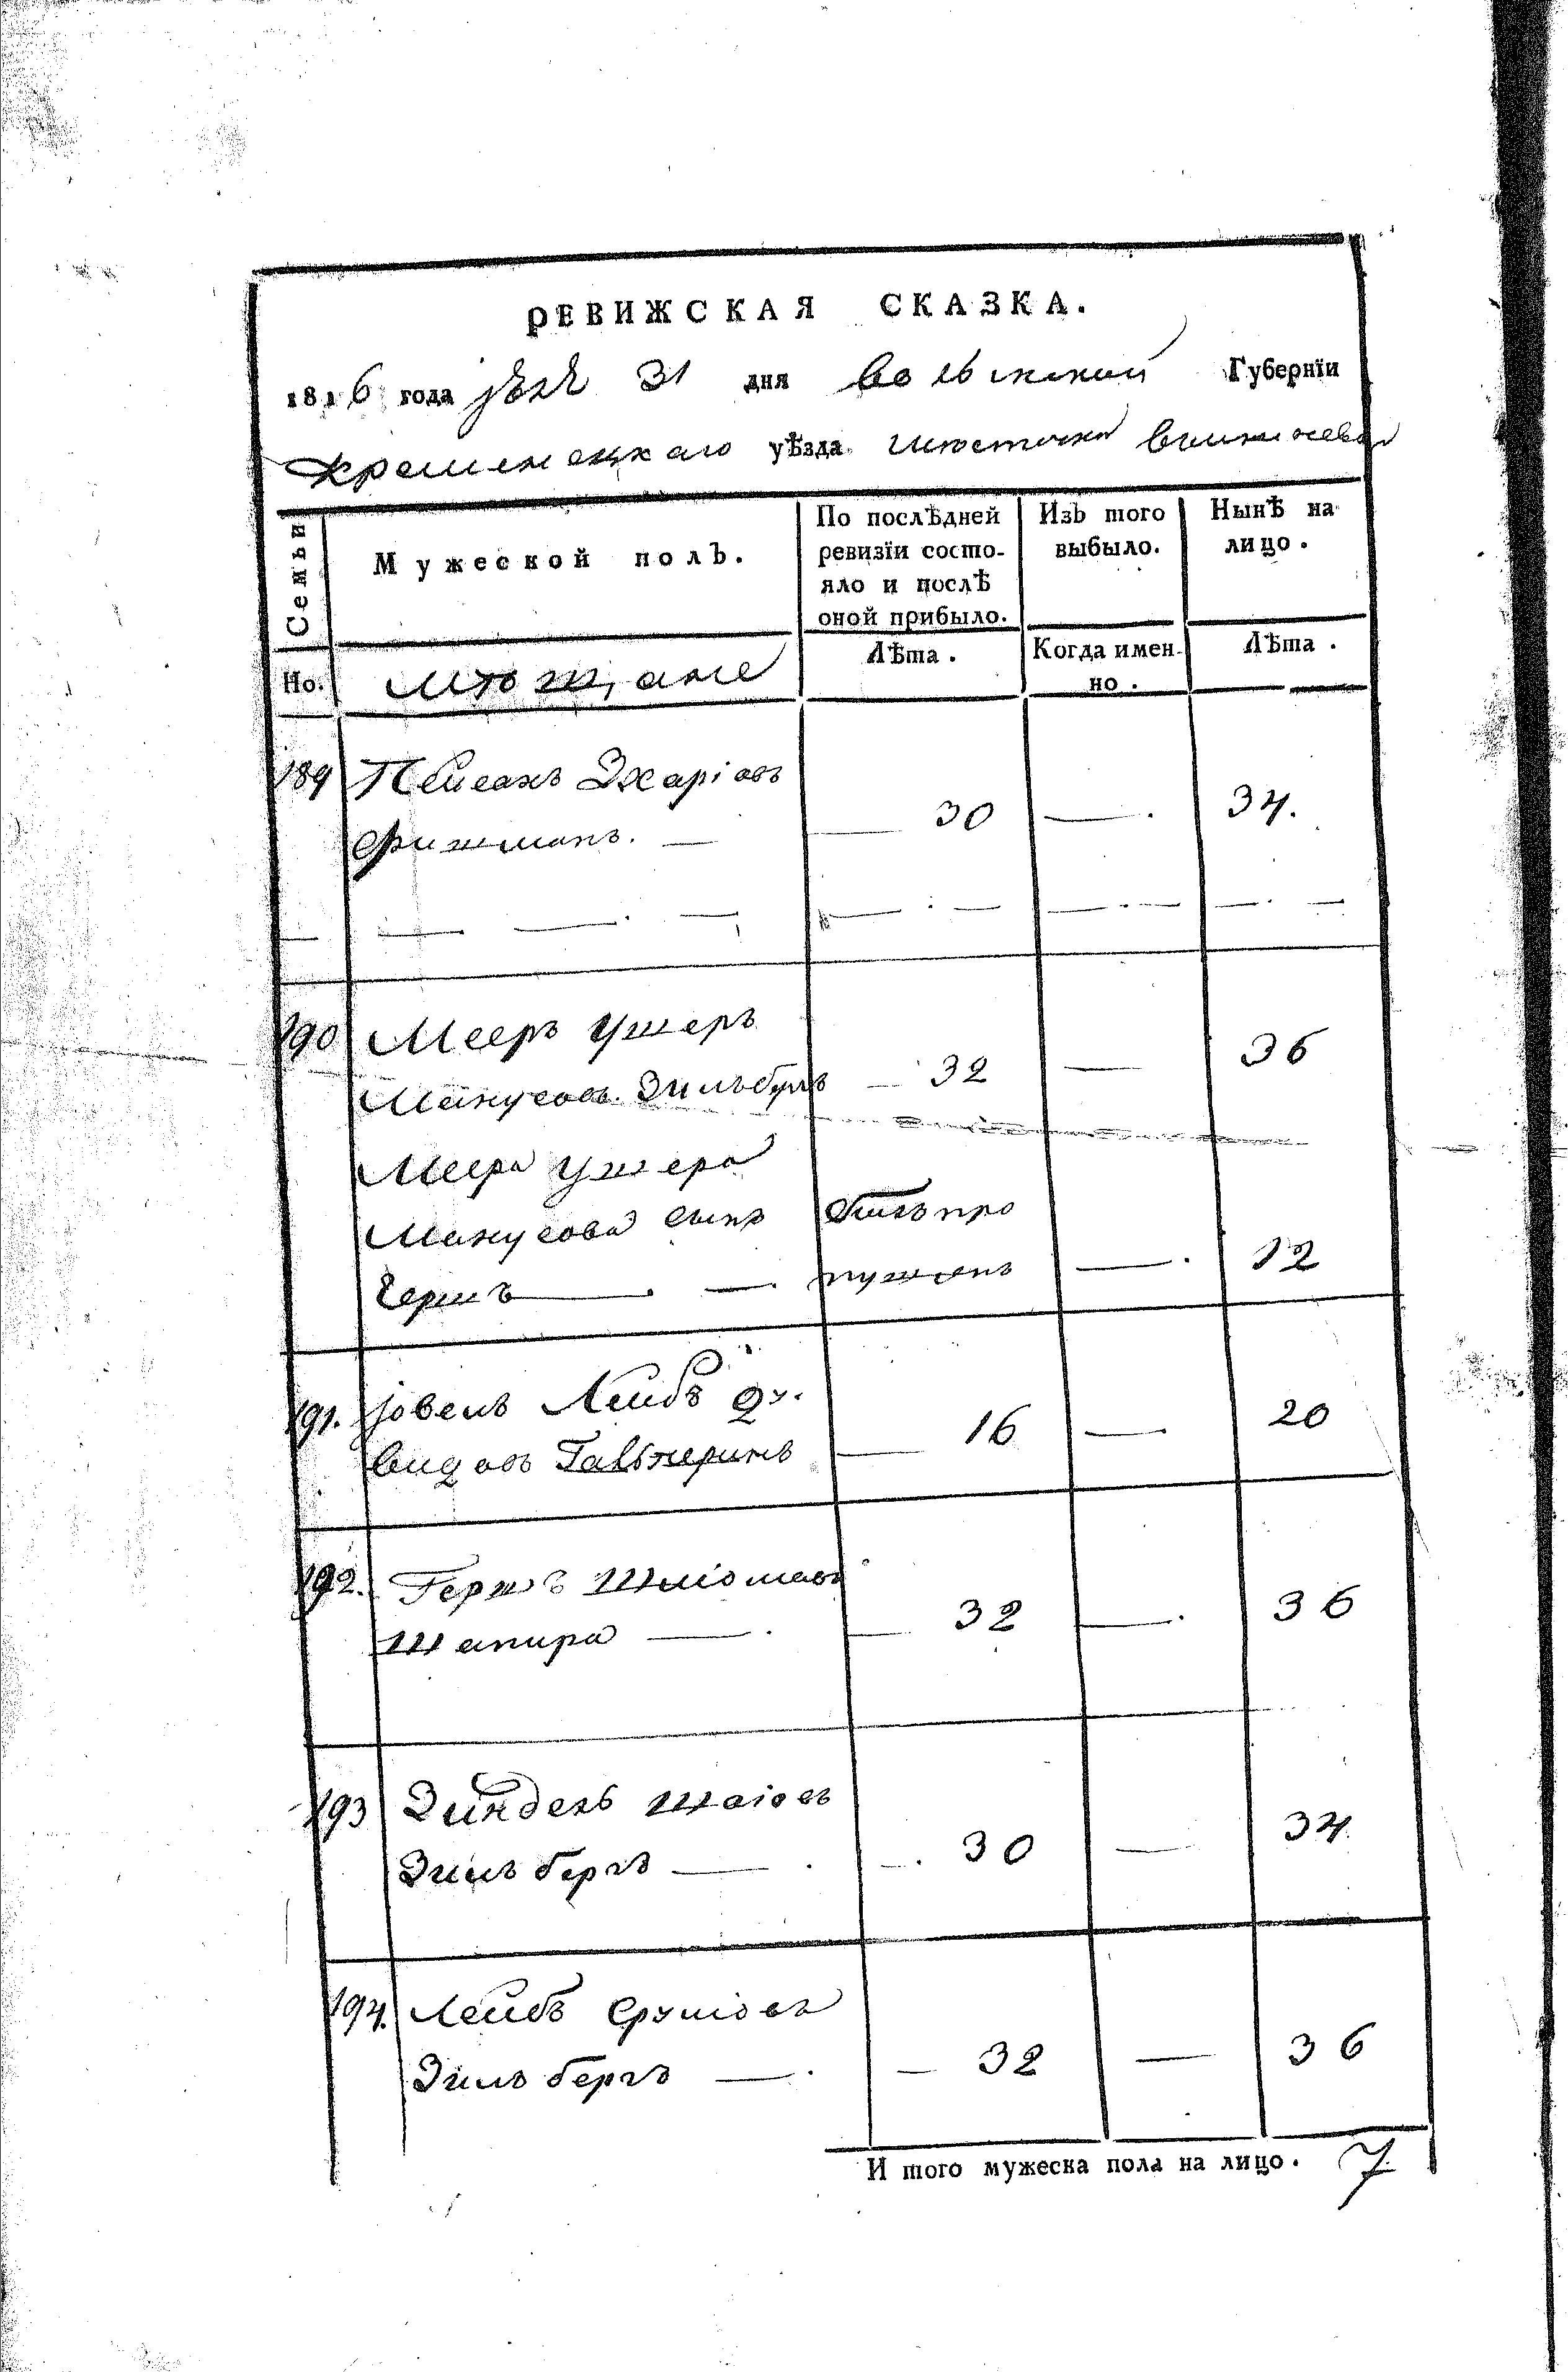 РЕВИЖСКАЯ СКАЗКА.
1816 года 31 дня волынской Губернїи
Кременецкаго уѣзда мѣстечка вишневца
Семьи
Мужеской полъ.
По послѣдней ревизїи состояло и послѣ оной прибыло.
Изъ того выбыло.
Нынѣ на лицо.
Но.
мѣщане
Лѣта.
Когда именно.
Лѣта.
189 Пейсахъ Зхаріовъ
Фишманъ. — 30 — 34.
190 Мееръ Ушеръ
Манусовъ Зильбергъ — 32 — 36
Меера Ушера
Манусова сынъ былъ про
Гершъ — пущенъ — 12
191. Іовель Лейбъ Да
видовъ Гальперинъ — 16 — 20
192. Гершъ Шліомовъ
Шапира — 32 — 36
193 Зинделъ Шаіовъ
Зильбергъ — 30 — 34
194. Лейбъ Сруліовъ
Зильбергъ — 32 — 36
И того мужеска пола на лицо. 7